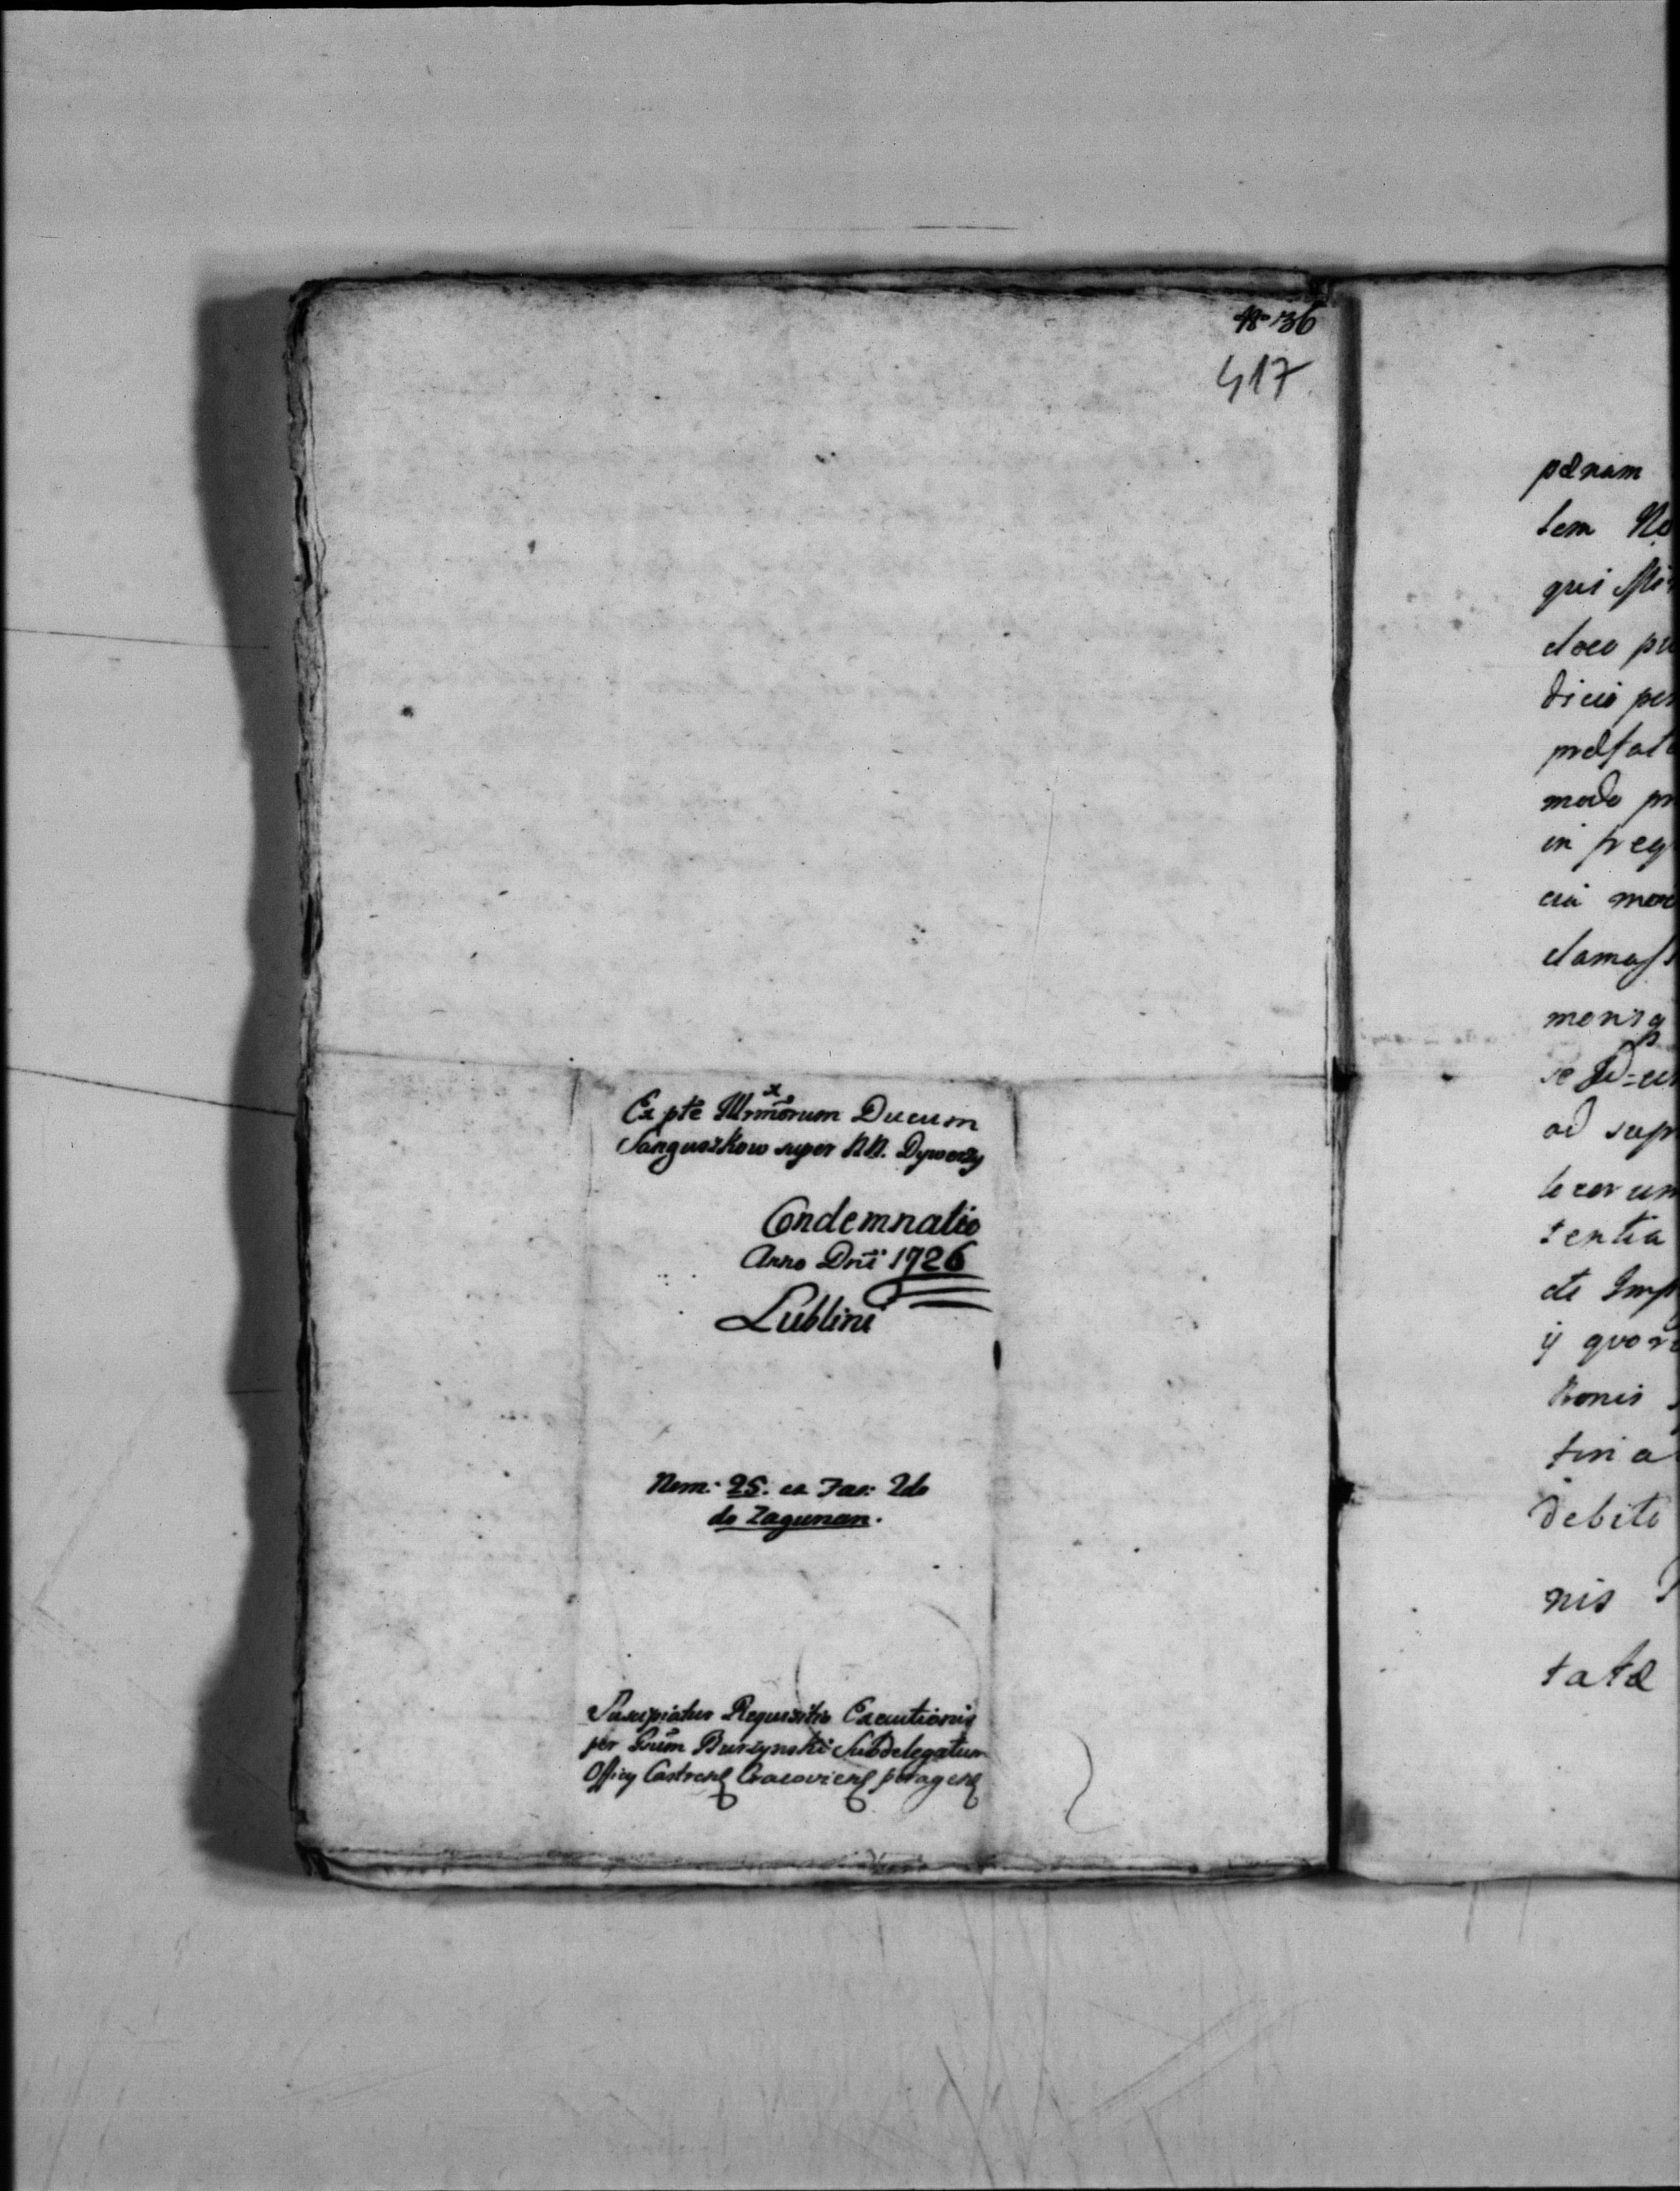 No 36
417
Ex pte Illrmorum Ducum
Sanguszkow super NN. Dywerzy
Condemnatio
Anno Dni 1726
Lublini
Nem: 25. ex Fas: 2do
do Zagunan.
Suscipiatur Requisitio Executionis
per Gsum Burzynski Subdelegatum
Officy Castrens Cracoviens peragens
pænam
tem
qui
doeo
dicio
præfat
modo
in freq
cia
clamass
se
ad sup
tentia
de Imp
ij quor
Bonis
debito
nis
tatæ